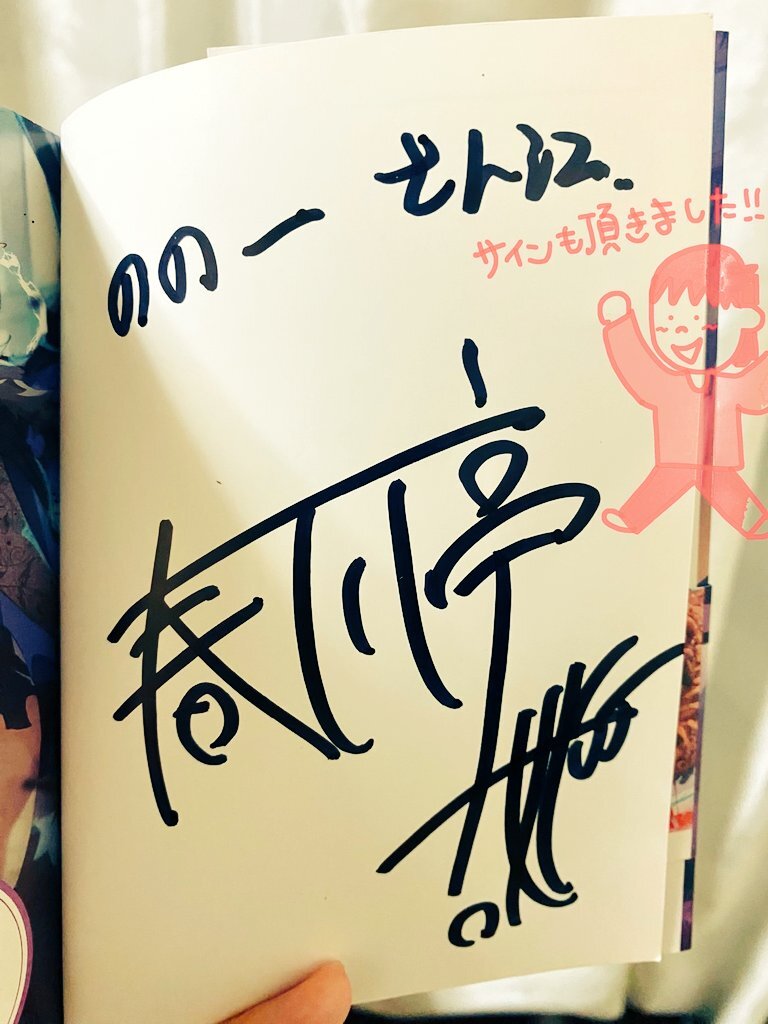 ののー さん江
サインも頂きました!!
春風亭